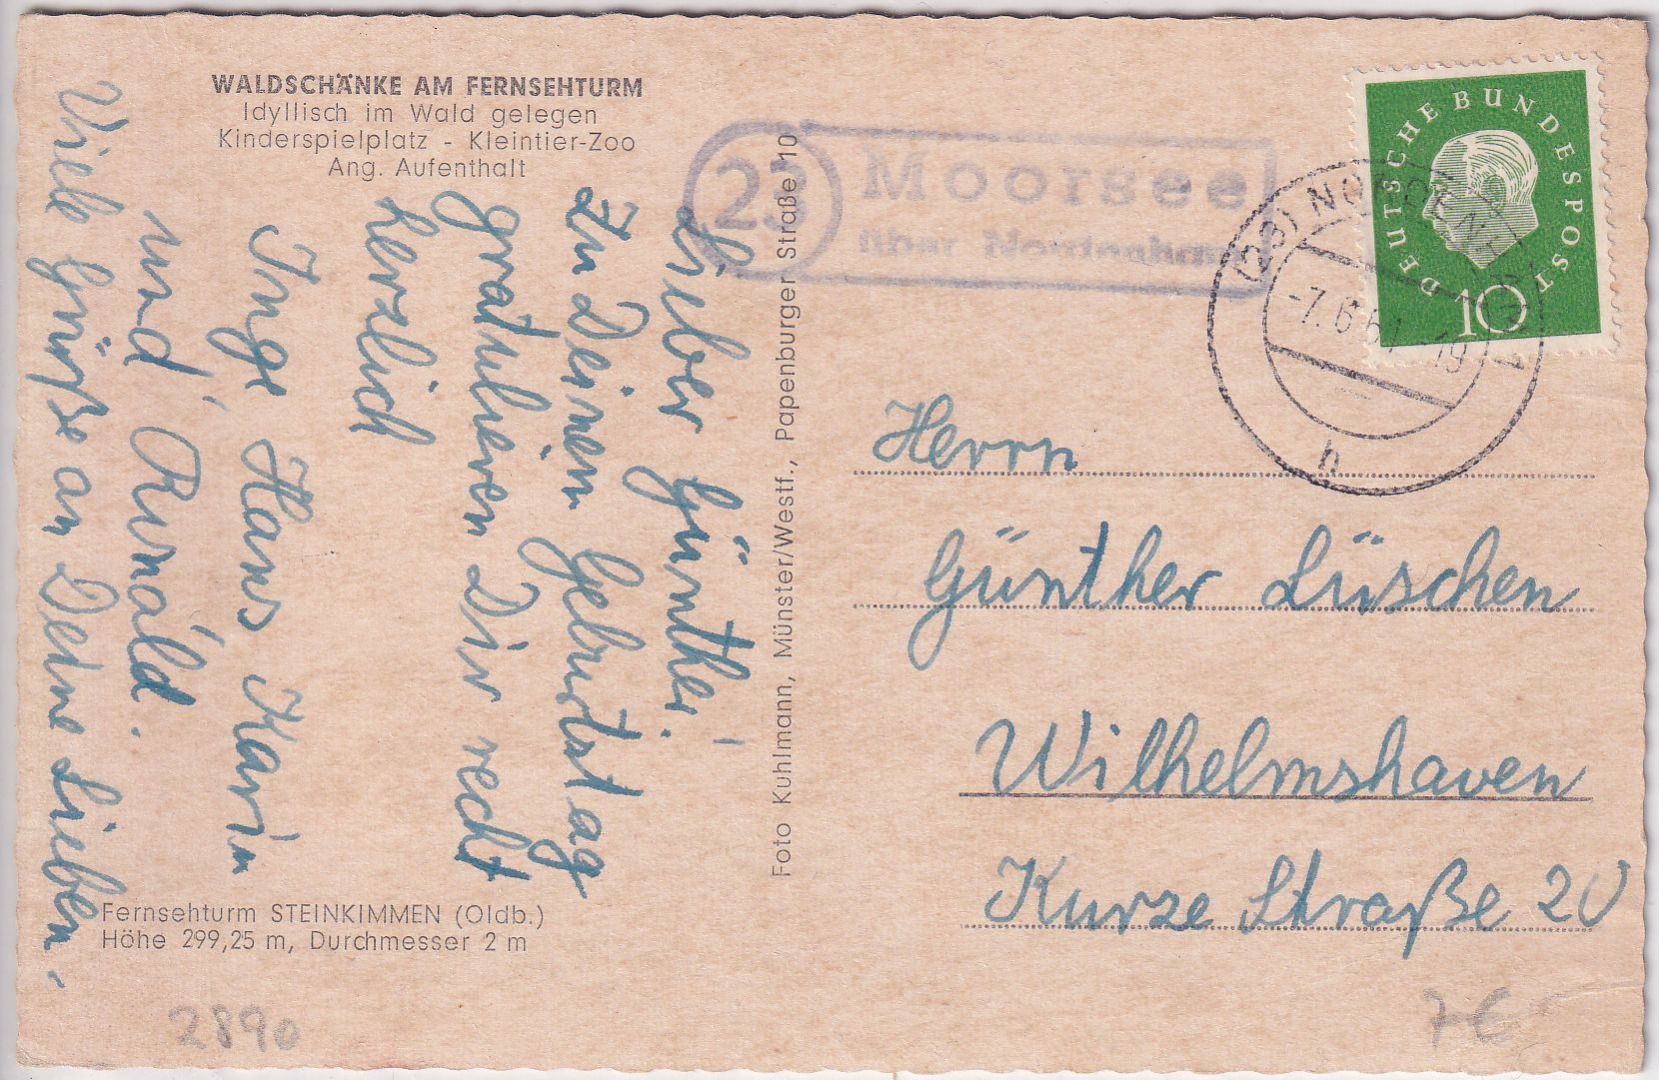 WALDSCHÄNKE AM FERNSEHTURM
Idyllisch im Wald gelegen
Kinderspielplatz - Kleintier-Zoo
Ang. Aufenthalt
Lieber Günther!
Zu Deinem Geburtstag
gratulieren Dir recht
herzlich
Inge Hans Karin
und
Viele Grüße an Deine Lieben.
Fernsehturm STEINKIMMEN (Oldb.)
Höhe 299,25 m, Durchmesser 2 m
2890
Foto Kuhlmann, Münster/Westf., Papenburger Straße 10
23 Moorsee
über Nordenham
DEUTSCHE BUNDESPOST
10
(23) NORDENHAM
-7.6.61-19
h
Herrn
Günther Lüschen
Wilhelmshaven
Kurze Straße 20
7€